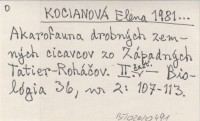 D
KOCIANOVÁ Elena 1981...
Akarofauna drobných zem-
ných cicavcov zo Západných
Tatier-Roháčov. II. časť. — Bio-
lógia 36, nr 2: 107-113.